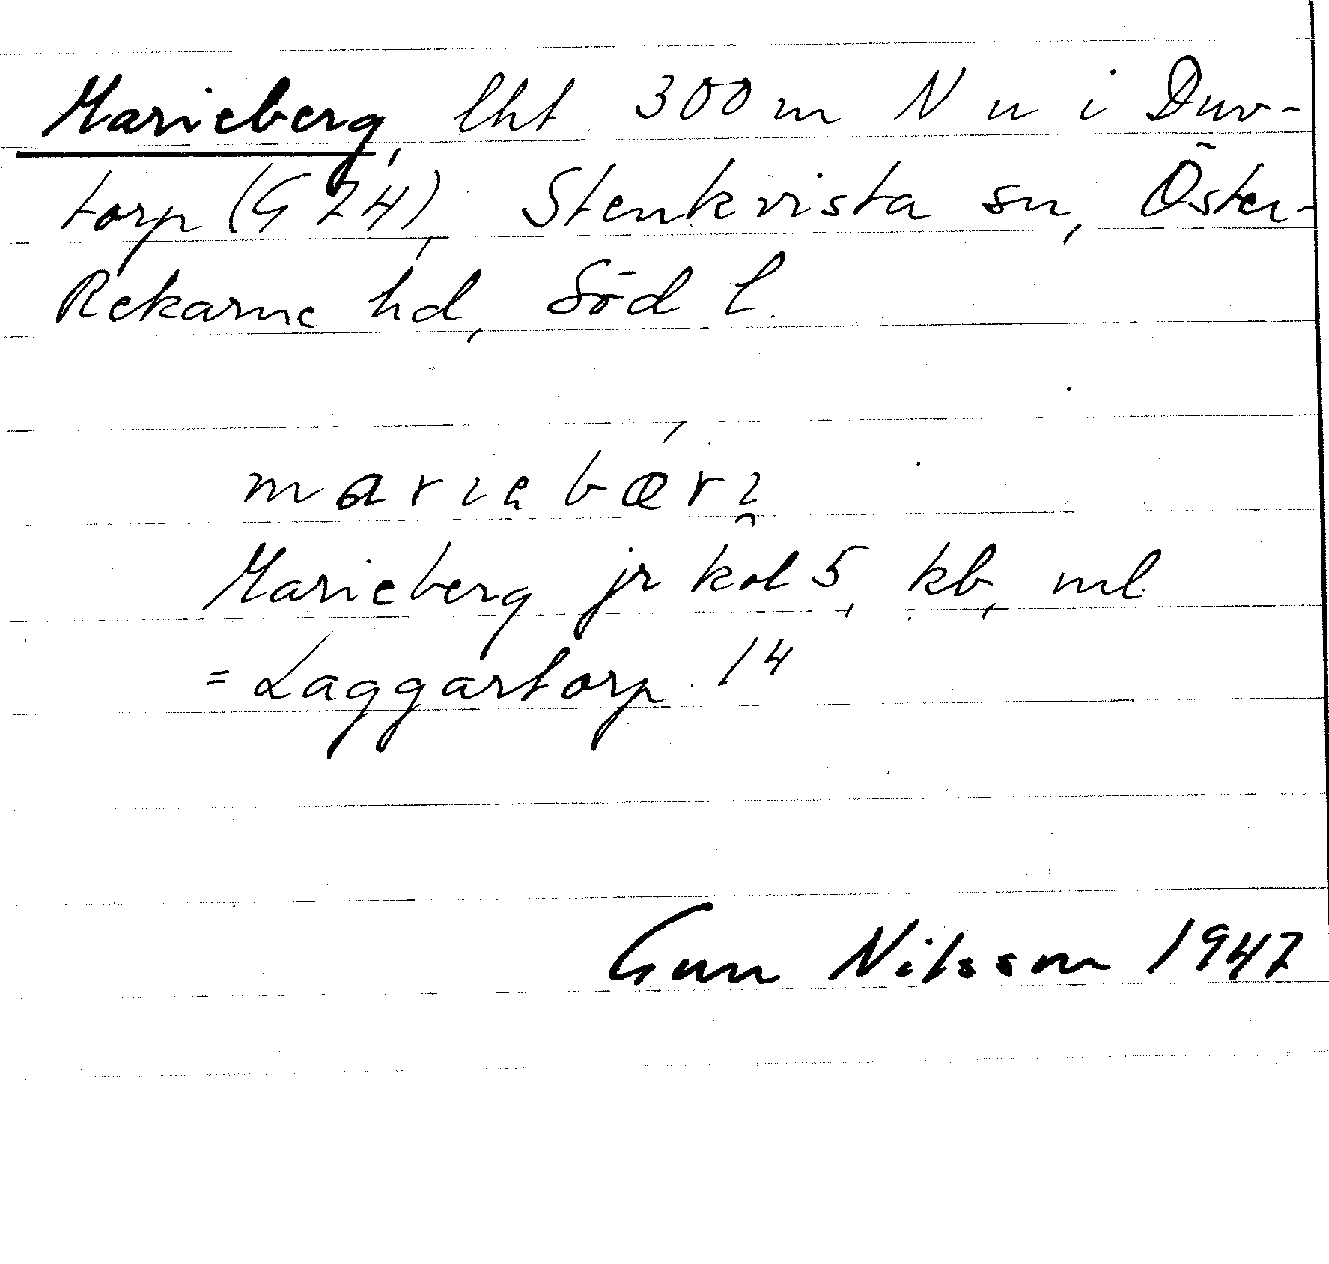 Marieberg, lht 300 m N u i Duv-
torp (G 24), Stenkvista sn, Öster-
Rekarne hd, Söd l.
Marieberg jr kol 5, kb, ml
= Laggartorp 14
Gun Nilsson 1947